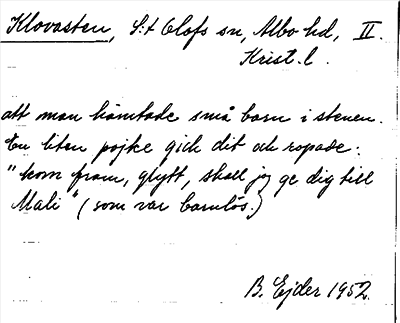 Klovasten, S:t Olofs sn, Albo hd, II.
Krist. l.
att man hämtade små barn i stenen.
En liten pojke gick dit och ropade:
"kom fram, glytt, skall jag ge dig till
Mali" (som var barnlös.)
B. Ejder 1952.